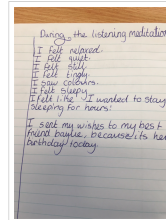 During the listening meditation
I felt relaxed.
I felt quiet.
I felt still.
I felt tingly.
I saw colours.
I felt sleepy.
I felt like I wanted to stay
sleeping for hours!
I sent my wishes to my best
friend because its her
birthday today